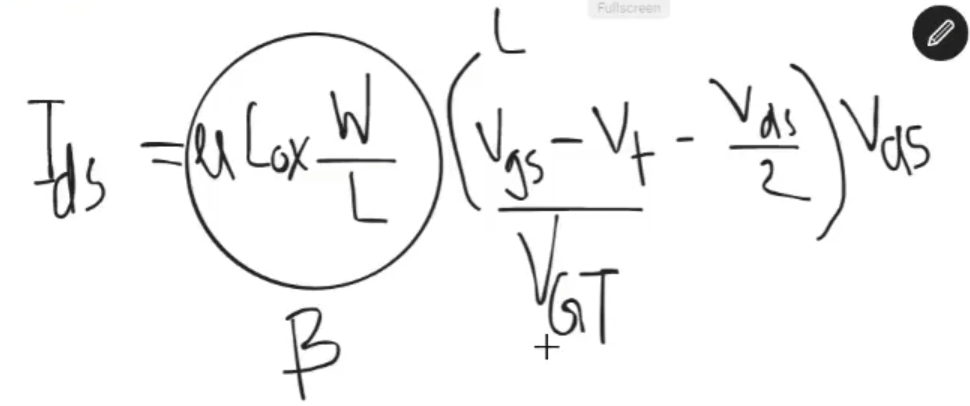 Fullscreen
L
I_ds = μ Cox W/L (V_gs - V_t - V_ds/2) V_ds
V_GT
β